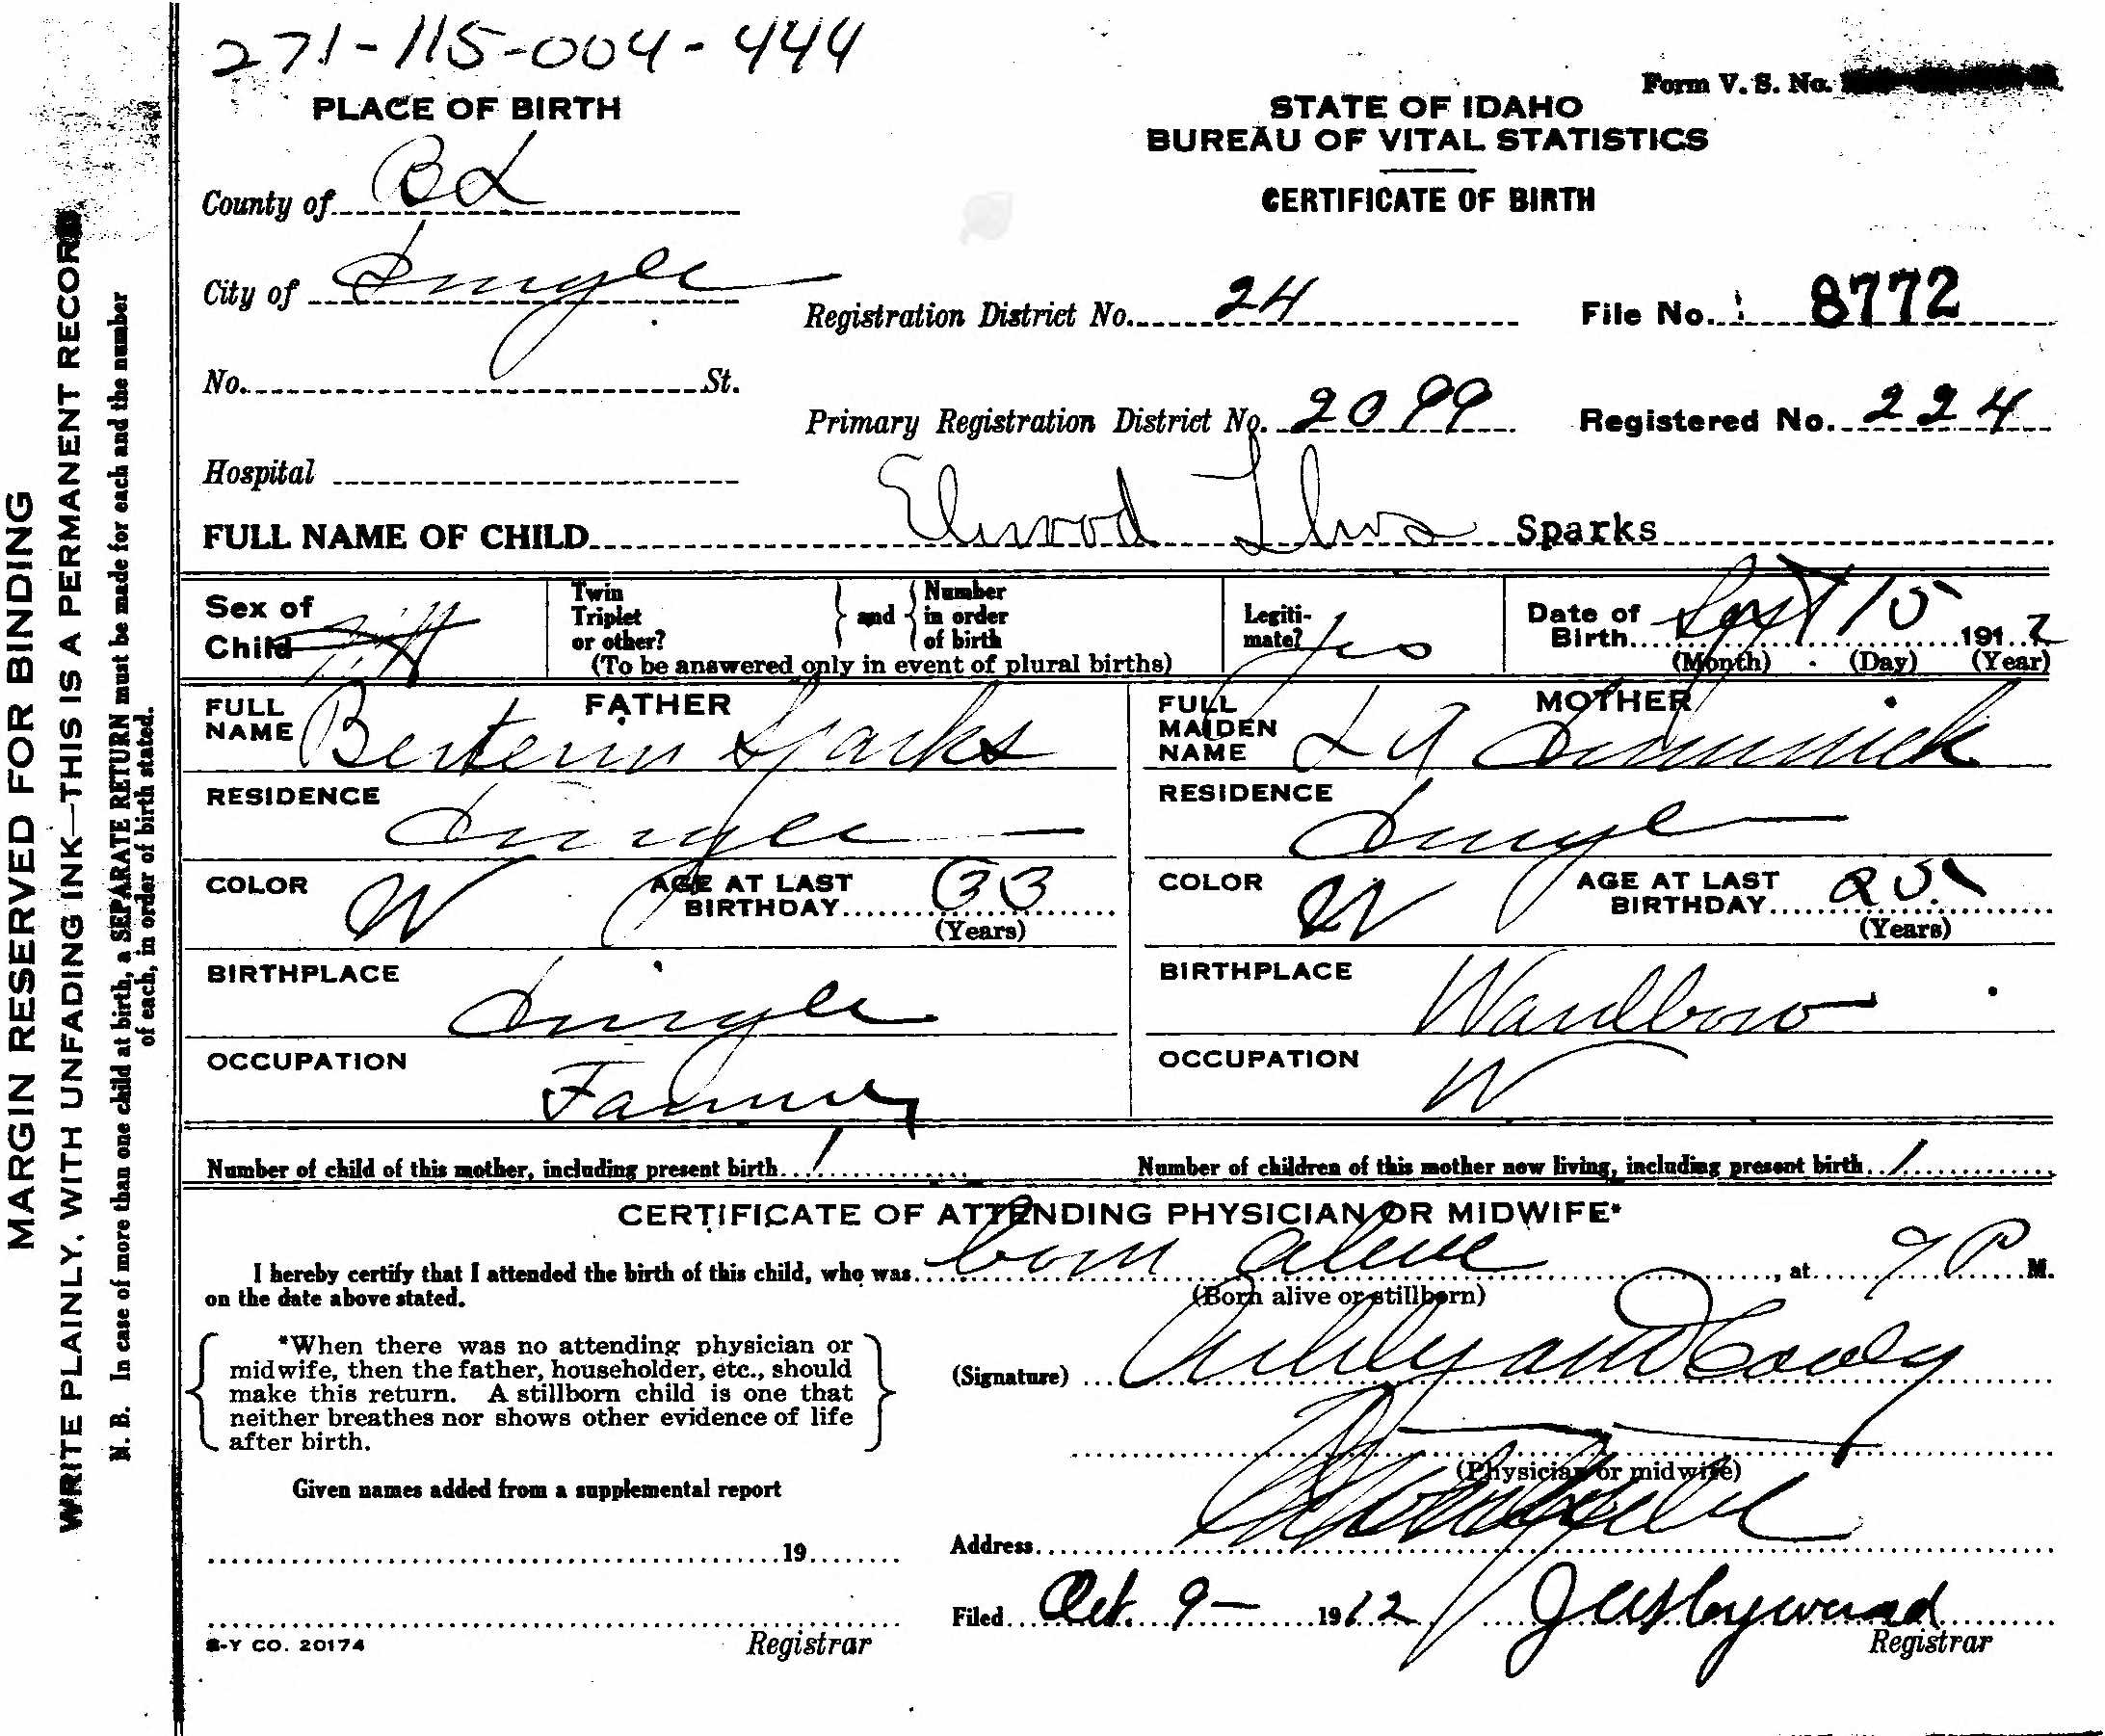 271-115-004-444
Form V. S. No.
PLACE OF BIRTH
STATE OF IDAHO
BUREAU OF VITAL STATISTICS
CERTIFICATE OF BIRTH
County of BL
City of Dingle
Registration District No. 24
File No. 8772
No. St.
Primary Registration District No. 2099
Registered No. 224
Hospital
FULL NAME OF CHILD Elwood Sparks
Sex of Child
Twin Triplet or other?
and
Number in order of birth
(To be answered only in event of plural births)
Legitimate? Yes
Date of Birth Sept 15 1912
(Month) (Day) (Year)
FATHER
FULL NAME Sparks
MOTHER
FULL MAIDEN NAME
RESIDENCE Dingle
RESIDENCE Dingle
COLOR W
AGE AT LAST BIRTHDAY 33
(Years)
COLOR W
AGE AT LAST BIRTHDAY 25
(Years)
BIRTHPLACE Dingle
BIRTHPLACE
OCCUPATION Farmer
OCCUPATION W
Number of child of this mother, including present birth 1
Number of children of this mother now living, including present birth 1
CERTIFICATE OF ATTENDING PHYSICIAN OR MIDWIFE*
I hereby certify that I attended the birth of this child, who was born alive, at 7 P M.
on the date above stated.
(Born alive or stillborn)
*When there was no attending physician or
midwife, then the father, householder, etc., should
make this return. A stillborn child is one that
neither breathes nor shows other evidence of life
after birth.
(Signature)
(Physician or midwife)
Given names added from a supplemental report
19
Address
Filed Oct. 9- 1912
Registrar
Registrar
S-Y CO. 20174
MARGIN RESERVED FOR BINDING
WRITE PLAINLY, WITH UNFADING INK—THIS IS A PERMANENT RECORD
N. B. In case of more than one child at birth, a SEPARATE RETURN must be made for each and the number
of each, in order of birth stated.